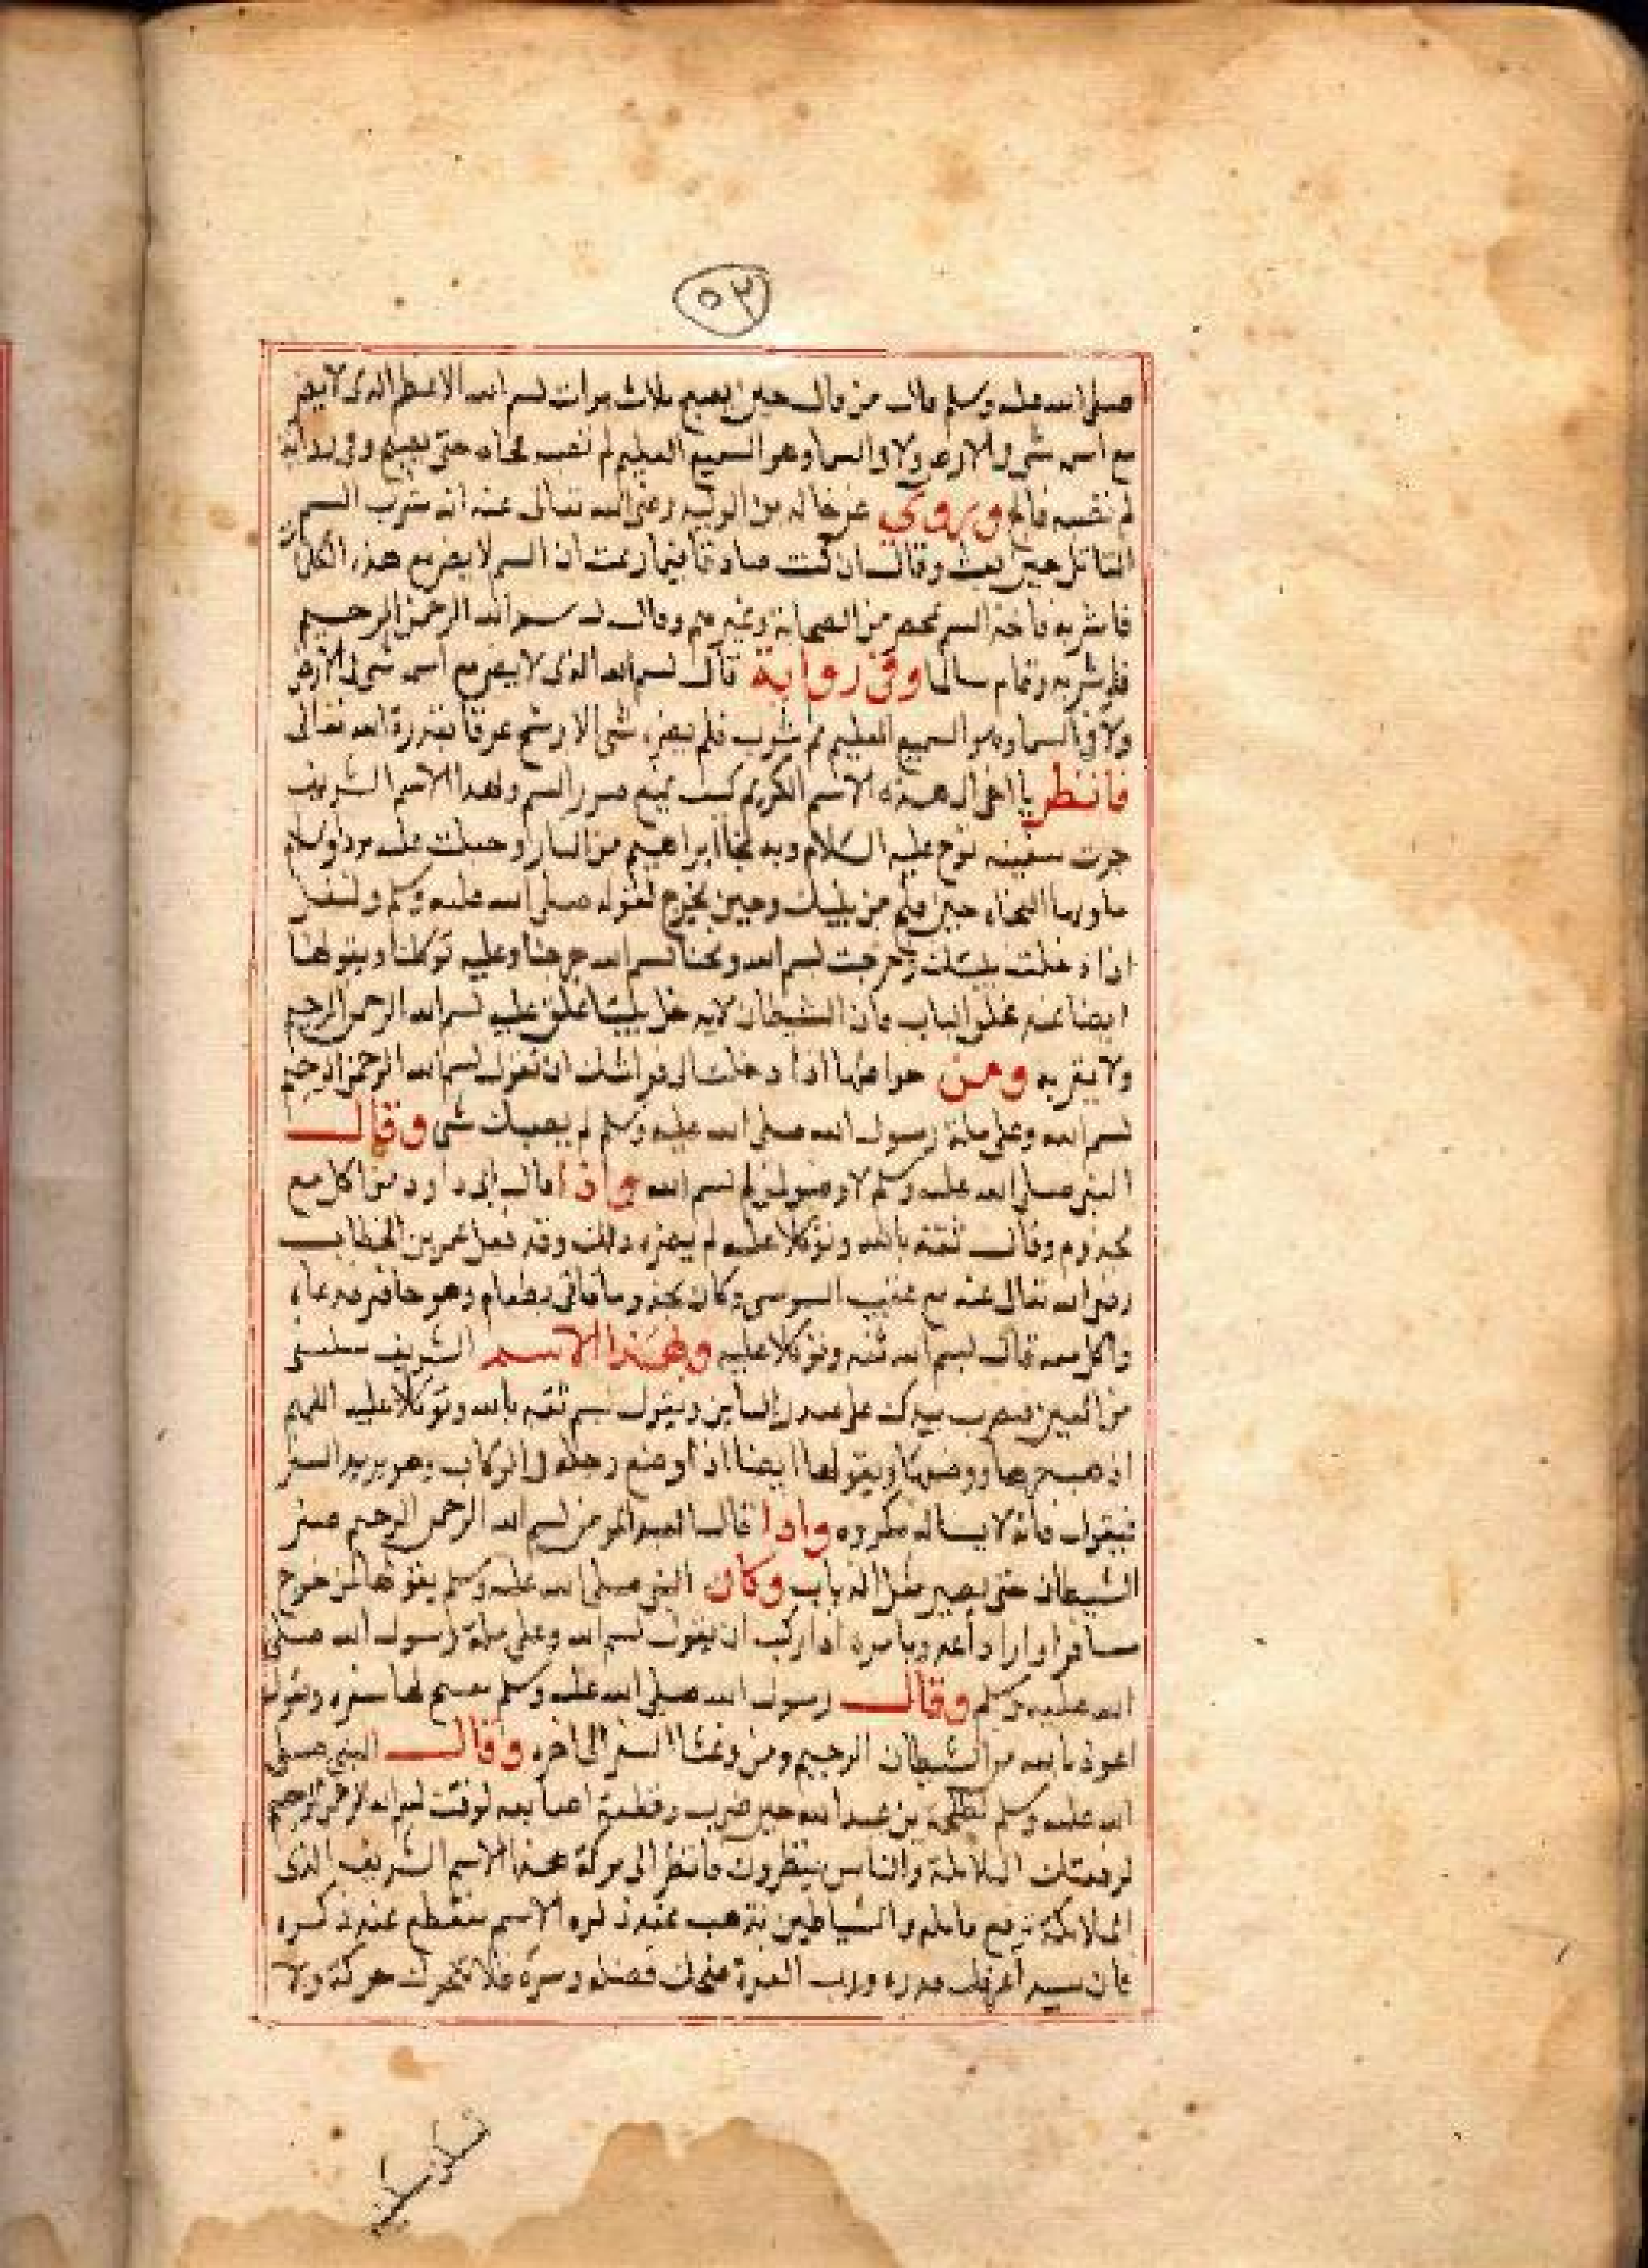 ٥٣
صلى الله عليه وسلم قال من قال حين يصبح ثلاث مرات بسم الله الاعظم الذى لا يضر
مع اسمه شى فى الارض ولا فى السما وهو السميع العليم لم تصبه فجاه حتى يصبح وفى رواية
لم تصبه فالج ويروي عن خالد بن الوليد رضى الله تعالى عنه انه شرب السم
القاتل حين بعث وقال ان كنت صادقا فيما زعمت ان السم لا يضر مع هذه الكلمات
فاشربه فاخذ السم بمحضر من الصحابة وغيرهم وقال بسم الله الرحمن الرحيم
ثم شربه وقام سالما وفي رواية قال بسم الله الذى لا يضر مع اسمه شى فى الارض
ولا فى السما وهو السميع العليم ثم شرب فلم يضره شى الا رشح عرقا بقدرة الله تعالى
فانظر يا اخى الى هذه الاسم الكريم كيف يمنع ضرر السم وبهذا الاسم الشريف
جرت سفينه نوح عليه السلام وبه نجا ابراهيم من النار وجعلت عليه بردا وسلاما
حين من بيتك وحين يخرج لقوله صلى الله عليه وسلم
اذا دخلت بيتك وخرجت بسم الله ولجنا بسم الله خرجنا وعليه توكلنا ويقولها
ايضا عند غلق الباب فان الشيطان لا يدخل بيتا غلق عليه بسم الله الرحمن الرحيم
ولا يقربه ومن خواصها اذا دخلت الى فراشك ان تقول بسم الله الرحمن الرحيم
بسم الله وعلى ملة رسول الله صلى الله عليه وسلم لم يصبك شى وقال
النبى صلى الله عليه وسلم لا وضو لمن لم بسم الله واذا قال ابى داود من اكل مع
مجذوم وقال ثقة بالله وتوكلا عليه لم يضره ذلك وقد فعل عمر بن الخطاب
رضى الله تعالى عنه مع وكان مجذوما فاتى بطعام وهو حاضر فدعاه
واكل معه فقال بسم الله ثقه وتوكلا عليه وبهذا الاسم الشريف
من العين فيضرب بيدك على صدر ويقول بسم ثقه بالله وتوكلا عليه اللهم
اذهب حرها وبردها ويقولها ايضا اذا وضع رجله فى الركاب وهو يريد السفر
فيقول فانه لا يناله مكروه واذا قال العبد المومن بسم الله الرحمن الرحيم صغر
الشيطان حتى يصير مثل الذباب وكان النبى صلى الله عليه وسلم يقولها لمن خرج
مسافرا ويامره اذا ركب ان يقول بسم الله وعلى ملة رسول الله صلى
الله عليه وسلم وقال رسول الله صلى الله عليه وسلم لها سفره وتقول
اعوذ بالله من الشيطان الرجيم ومن وعثا السفر الى اخره وقال النبى صلى
الله عليه وسلم لطلحة بن عبد الله حين ضرب وقطعت لو قلت بسم الله الرحمن الرحيم
لرفعتك الملائكة والناس ينظرون فانظر الى بركة هذا الاسم الشريف الذى
الملائكة ترفع والشياطين تذهب عند ذكره الاسم عند ذكره
قدره ورب العزة وسره فلا تتحرك حركة ولا